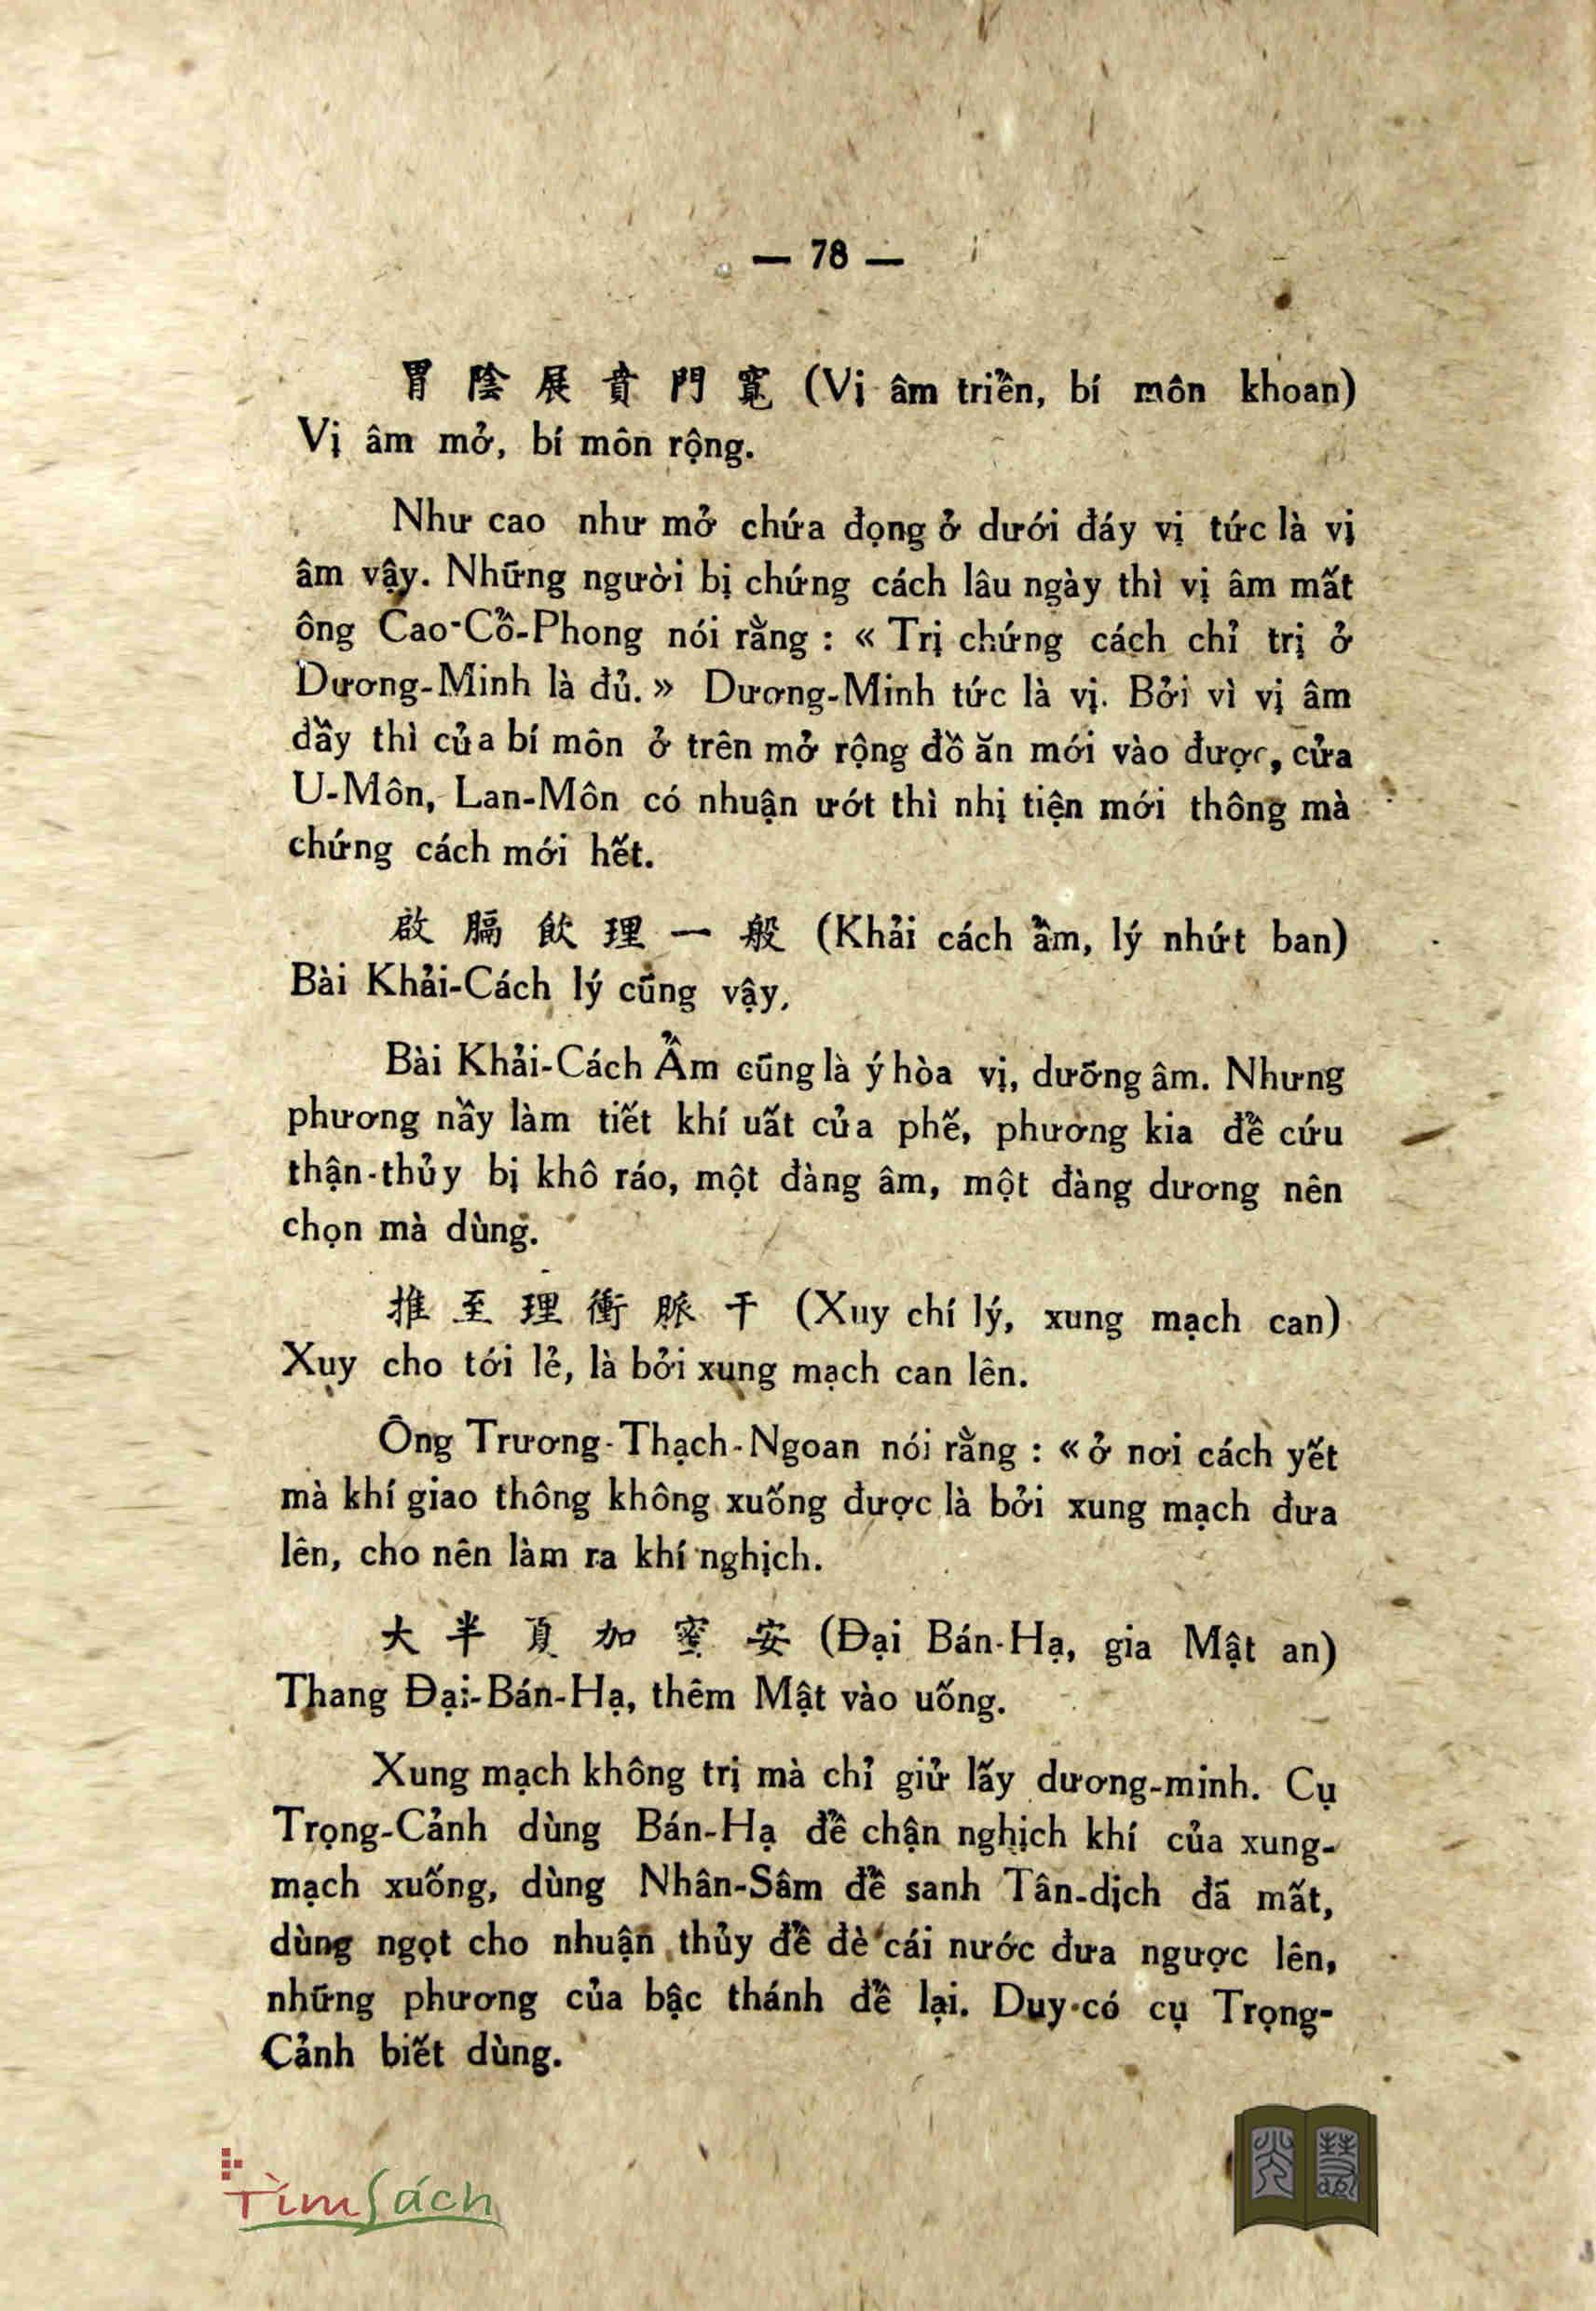 — 78 —
胃陰展賁門寬 (Vị âm triển, bí môn khoan)
Vị âm mở, bí môn rộng.
Như cao như mở chứa đọng ở dưới đáy vị tức là vị
âm vậy. Những người bị chứng cách lâu ngày thì vị âm mất
ông Cao-Cổ-Phong nói rằng : « Trị chứng cách chỉ trị ở
Dương-Minh là đủ. » Dương-Minh tức là vị. Bởi vì vị âm
đầy thì của bí môn ở trên mở rộng đồ ăn mới vào được, cửa
U-Môn, Lan-Môn có nhuận ướt thì nhị tiện mới thông mà
chứng cách mới hết.
啟膈飲理一般 (Khải cách ẩm, lý nhứt ban)
Bài Khải-Cách lý cũng vậy.
Bài Khải-Cách Ẩm cũng là ý hòa vị, dưỡng âm. Nhưng
phương nầy làm tiết khí uất của phế, phương kia để cứu
thận-thủy bị khô ráo, một đàng âm, một đàng dương nên
chọn mà dùng.
推至理衝脈干 (Xuy chí lý, xung mạch can)
Xuy cho tới lẻ, là bởi xung mạch can lên.
Ông Trương-Thạch-Ngoan nói rằng : « ở nơi cách yết
mà khí giao thông không xuống được là bởi xung mạch đưa
lên, cho nên làm ra khí nghịch.
大半夏加蜜安 (Đại Bán-Hạ, gia Mật an)
Thang Đại-Bán-Hạ, thêm Mật vào uống.
Xung mạch không trị mà chỉ giử lấy dương-minh. Cụ
Trọng-Cảnh dùng Bán-Hạ để chận nghịch khí của xung-
mạch xuống, dùng Nhân-Sâm để sanh Tân-dịch đã mất,
dùng ngọt cho nhuận thủy để đè cái nước đưa ngược lên,
những phương của bậc thánh để lại. Duy có cụ Trọng-
Cảnh biết dùng.
TìmSách